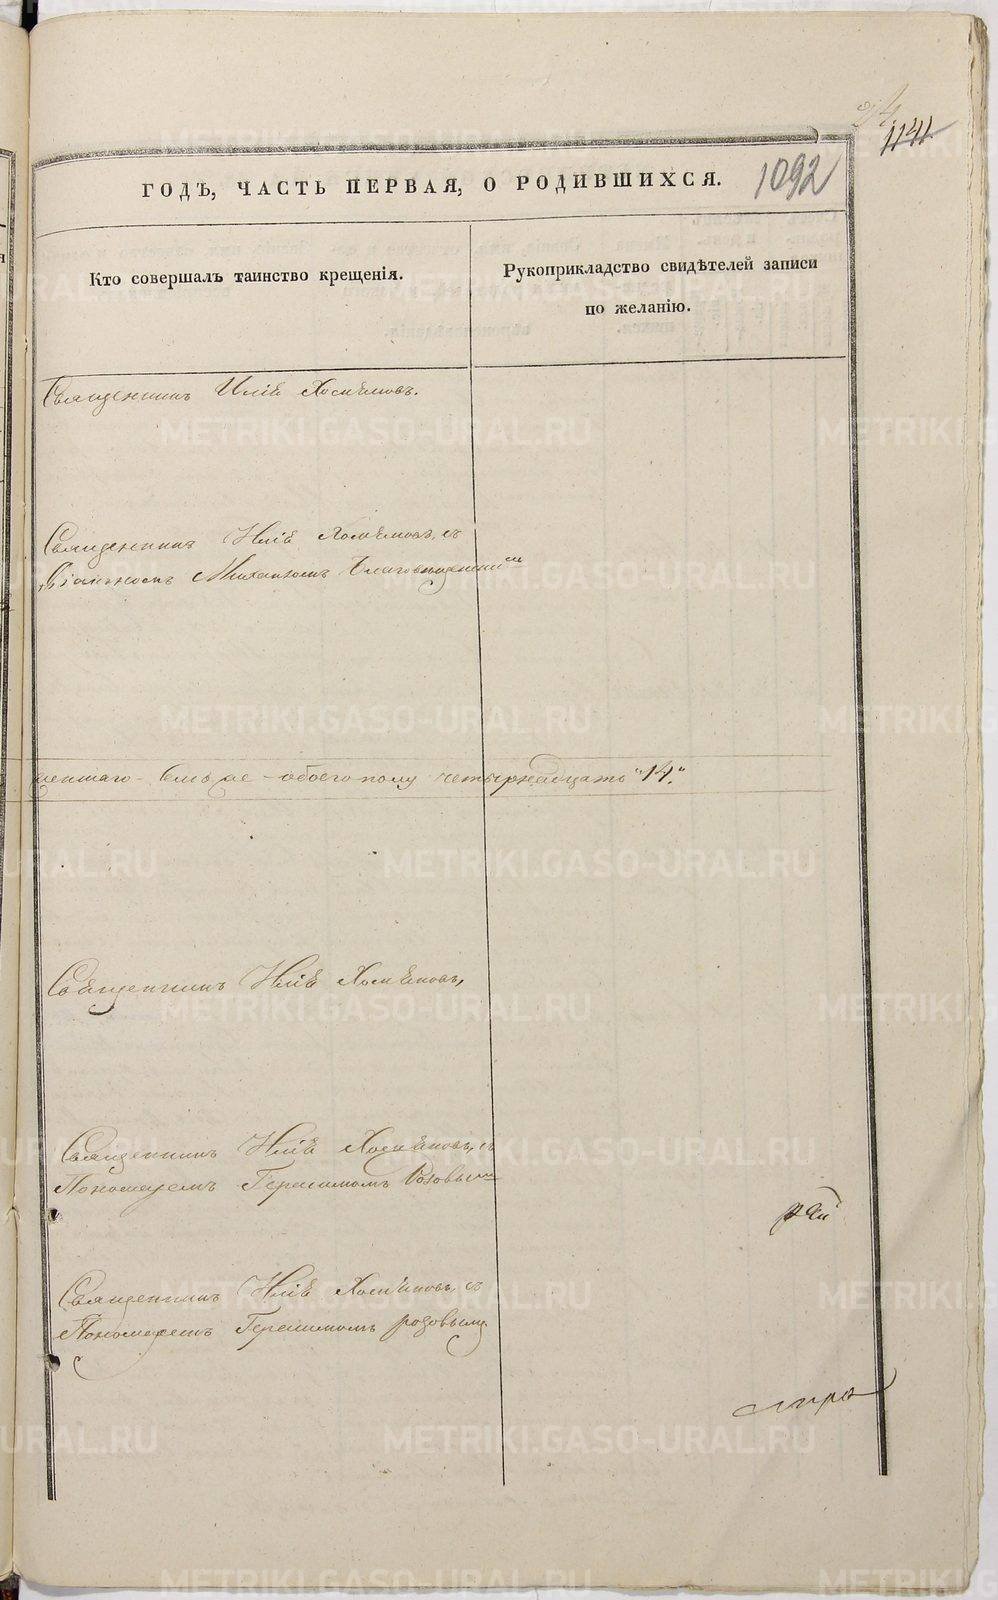 1141
ГОДЪ, ЧАСТЬ ПЕРВАЯ, О РОДИВШИХСЯ.
1092
Кто совершалъ таинство крещенія.
Рукоприкладство свидѣтелей записи
по желанію.
Священникъ Илія Хомяковъ.
Священникъ Илія Хомяковъ, съ
Діакономъ Михаиломъ Благовѣщенскимъ
обоего полу четырнадцать "14."
Священникъ Илія Хомяковъ,
Священникъ Илія Хомяковъ, съ
Пономаремъ Герасимомъ Розовымъ
Священникъ Илія Хомяковъ, съ
Пономаремъ Герасимомъ розовымъ
METRIKI.GASO-URAL.RU